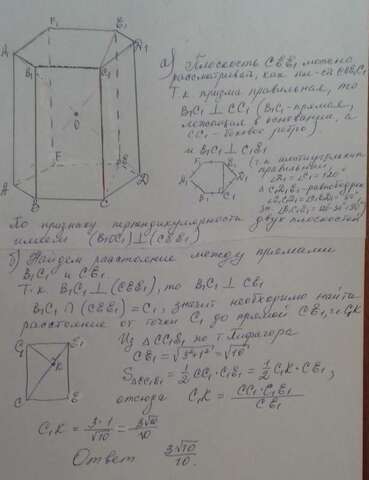 F₁
E₁
A₁
D₁
B₁
C₁
O
F
E
A
D
B
C
а) Плоскость CEE₁ можно
рассматривать, как пл-сть CEE₁C₁
Т.к. призма правильная, то
B₁C₁ ⊥ CC₁ (B₁C₁ - прямая,
лежащая в основании, а
CC₁ - боковое ребро)
и B₁C₁ ⊥ C₁E₁
(т.к. шестиугольник
правильный,
По признаку перпендикулярности двух плоскостей
имеем (B₁OC₁) ⊥ (CEE₁)
б) Найдем расстояние между прямыми
B₁C₁ и CE₁.
Т.к. B₁C₁ ⊥ (CEE₁), то B₁C₁ ⊥ CE₁
B₁C₁ ∩ (CEE₁) = C₁, значит необходимо найти
расстояние от точки C₁ до прямой CE₁ = C₁K
C₁
E₁
K
C
E
Из △CC₁E₁ по т. Пифагора
CE₁ = √3²+1² = √10
S△CC₁E₁ = 1/2 CC₁·C₁E₁ = 1/2 C₁K·CE₁,
отсюда C₁K = CC₁·C₁E₁/CE₁
C₁K = 3·1/√10 = 3√10/10
Ответ 3√10/10.